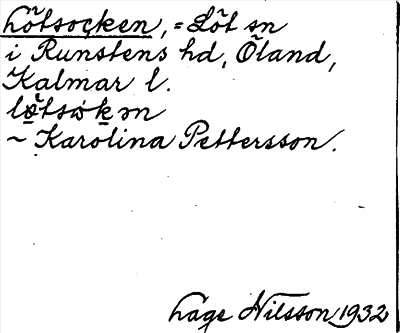 Lötsocken, = Löt sn
i Runstens hd, Öland,
Kalmar l.
~ Karolina Pettersson.
Lage Nilsson, 1932